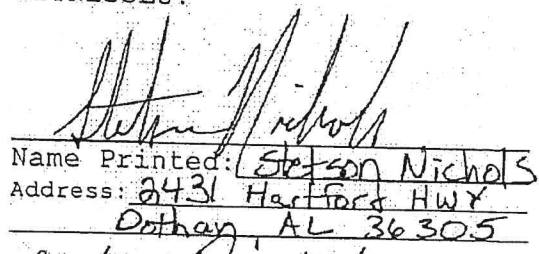 Stetson Nichols
Name Printed: Stetson Nichols
Address: 2431 Hartford HWY
Dothan, AL 36305